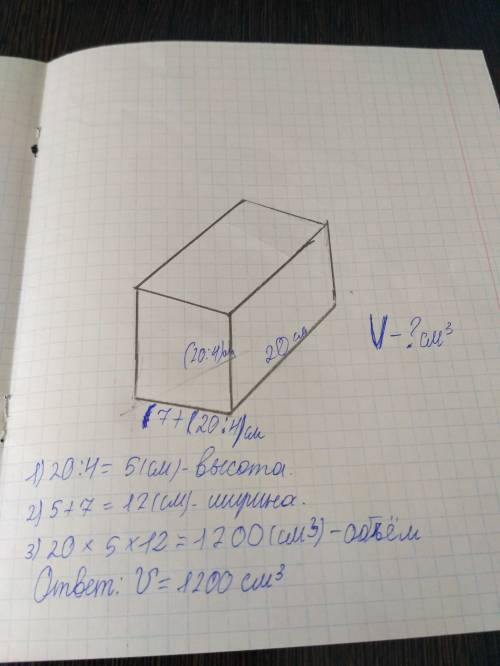 (20:4)см
20 см
V - ? см³
7+(20:4)см
1) 20:4 = 5(см) - высота.
2) 5+7 = 12(см) - ширина.
3) 20 × 5 × 12 = 1200(см³) - объём
Ответ: V = 1200 см³